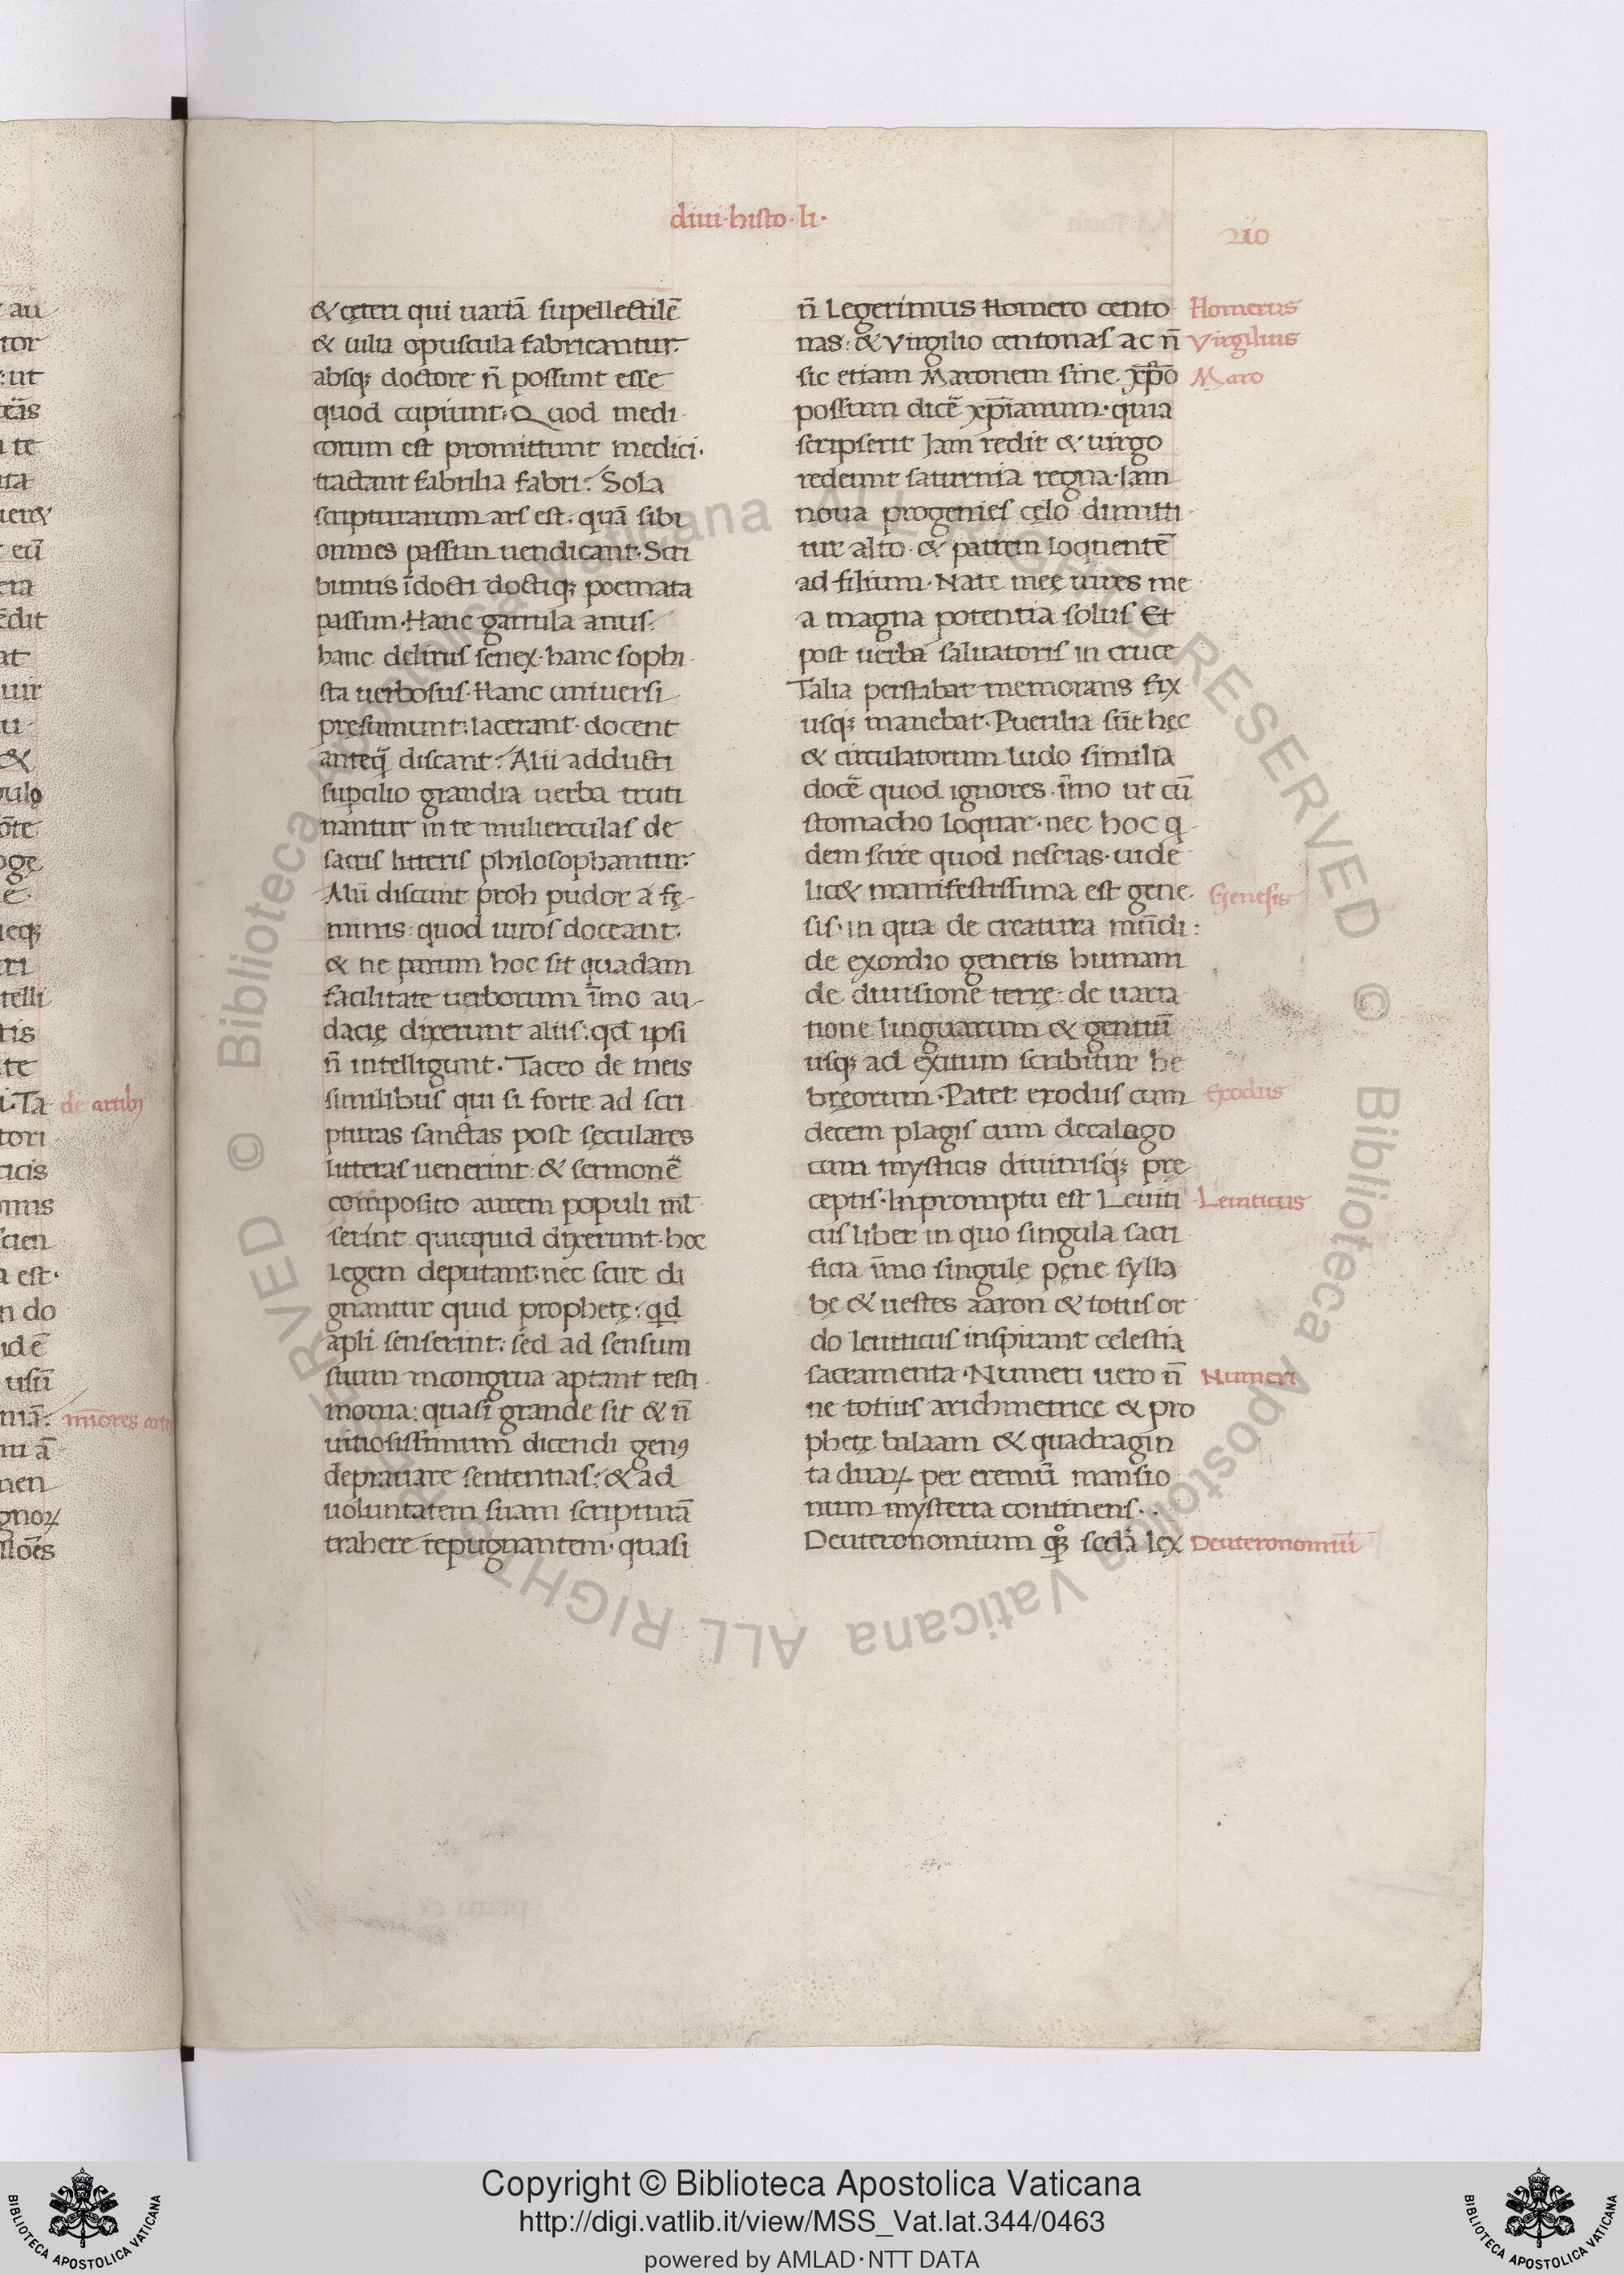 diui·histo·li·
210
& cęteri qui uariā supellectilē
& uilia opuscula fabricantur.
absq; doctore n̄ possunt esse
quod cupiunt: Quod medi-
corum est promittunt medici·
tractant fabrilia fabri: Sola
scripturarum ars est· quā sibi
omnes passim uendicant· Scri
bimus īdocti doctiq; poemata
passim· Hanc garrula anus·
hanc delirus senex· hanc sophi-
sta uerbosus· Hanc uniuersi
presumunt: lacerant· docent
anteq̄ discant: Alii adducti
supcilio grandia uerba truti
nantur inte mulierculas de
sacris litteris philosophantur:
Alii discunt proh pudor a fę-
minis: quod uiros doceant·
& ne parum hoc sit quadam
facilitate uerborum īmo au-
dacię dixerunt aliis: qd ipsi
n̄ intelligunt· Taceo de meis
similibus qui si forte ad scri
pturas sanctas post sęculares
litteras uenerint: & sermonē
composito aurem populi ml̄
serint quicquid dixerunt· hoc
Legem deputant: nec scire di
gnantur quid prophetę: qd
apli senserint: sed ad sensum
suum incongrua aptant testi
monia: quasi grande sit & n̄
uitiosissimum dicendi genꝰ
deprauare sententias: & ad
uoluntatem suam scripturā
trahere repugnantem· quasi
n̄ Legerimus Homero cento
nas: & Virgilio centonas ac n̄
sic etiam Maronem sine xp̄o
possim dicē xp̄ianum· quia
scripserit Iam redit & uirgo
redeunt saturnia regna· Iam
noua progenies cęlo dimitti-
tur alto· & patrem loquentē
ad filium· Nate meę uires me
a magna potentia solus Et
post uerba saluatoris in cruce
Talia perstabat memorans fix
usq; manebat· Puerilia sūt hęc
& circulatorum ludo similia
docē quod ignores· īmo ut cū
stomacho loquar· nec hoc q-
dem scire quod nescias· uide
lic& manifestissima est gene-
sis· in qua de creatura mūdi:
de exordio generis humani
de diuisione terrę: de uaria
tione linguarum & gentiū
usq; ad exitum scribitur he
breorum· Patet exodus cum
decem plagis cum decalogo
cum mysticis diuinisq; prę
ceptis· In promptu est Leuiti
cus liber in quo singula sacri
ficia īmo singulę pęne sylla
be & uestes aaron & totus or
do leuiticus inspirant celestia
sacramenta· Numeri uero n̄
ne totius arichmetrice & pro
phetę balaam & quadragin
ta duaꝝ per eremū mansio
num mysteria continens··
Deuteronomium qq; sedā lex
Homerus
Virgilius
Maro
Genesis
Exodus
Leuiticus
Numeri
Deuteronomiū
de artibꝫ
Copyright © Biblioteca Apostolica Vaticana
http://digi.vatlib.it/view/MSS_Vat.lat.344/0463
powered by AMLAD·NTT DATA
BIBLIOTECA APOSTOLICA VATICANA
BIBLIOTECA APOSTOLICA VATICANA